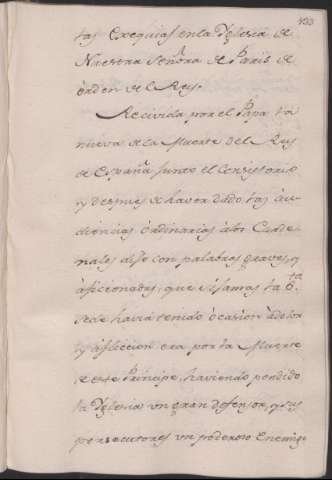 433
tas Exequias en la Yglesia de
Nuestra Señora de Paris de
òrden del Rey.
Recivida por el Papa ta
nueva de la Muerte del Rey
de España juntò el Consistorio
y despues de haver dado tas àu-
diencias òrdinarias àlos Carde-
nales dijo con palabras graves, y
àficionadas, que si Jamas ta S.ta
Sede havia tenido òcasion àdolor
y àfliccion era por ta Muerte
de este Principe, haviendo perdido
ta Yglesia un gran defensor, y sus
persecutores un poderoso Enemigo